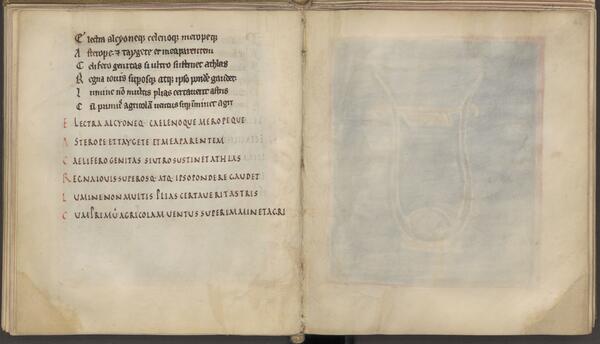 E lectra alcyoneq; celenoq; meropeq;
A sterope & taygete et meaparentem
C elifero genitas si uero sustinet athlas
R egna iouis superosq; atq; ipso pondere gaudet
L umine non multis plias certauerit astris
C um primu agricolam uentus superimminet agri
E LECTRA ALCYONEQ CAELENOQUE MEROPEQUE
A STEROPE ET TAYGETE ET MEA PARENTEM
C AELIFERO GENITAS SI UERO SUSTINET ATHLAS
R EGNA IOUIS SUPEROSQ ATQ IPSO PONDERE GAUDET
L UMINE NON MULTIS PLIAS CERTAUERIT ASTRIS
C UM PRIMU AGRICOLAM UENTUS SUPER IMMINET AGRI